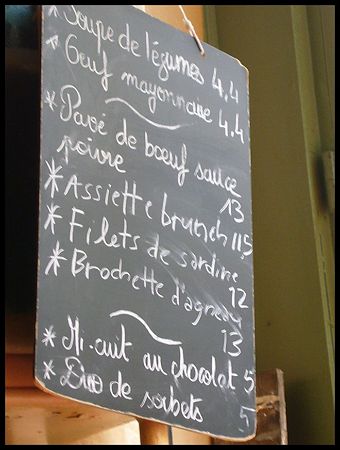 * Soupe de légumes 4,4
* Oeuf mayonnaise 4,4
* Pavé de boeuf sauce
poivre 13
* Assiette brunch 11,5
* Filets de sardine
12
* Brochette d'agneau
13
* Mi-cuit au chocolat 5
* Duo de sorbets 5